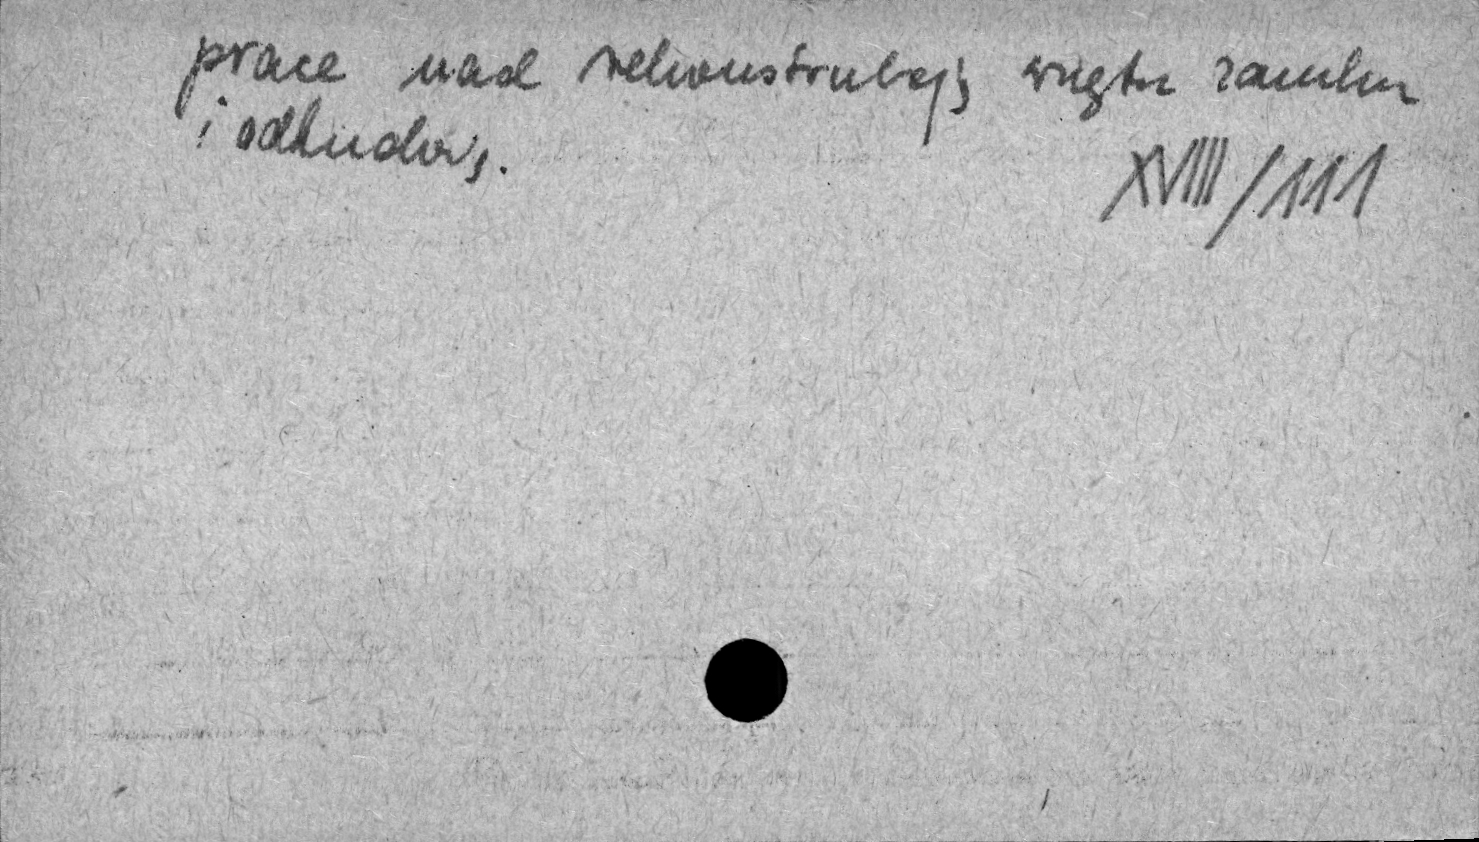 prace nad rekonstrukcją wnętrz zamku
i odbudową.
XVIIII/111